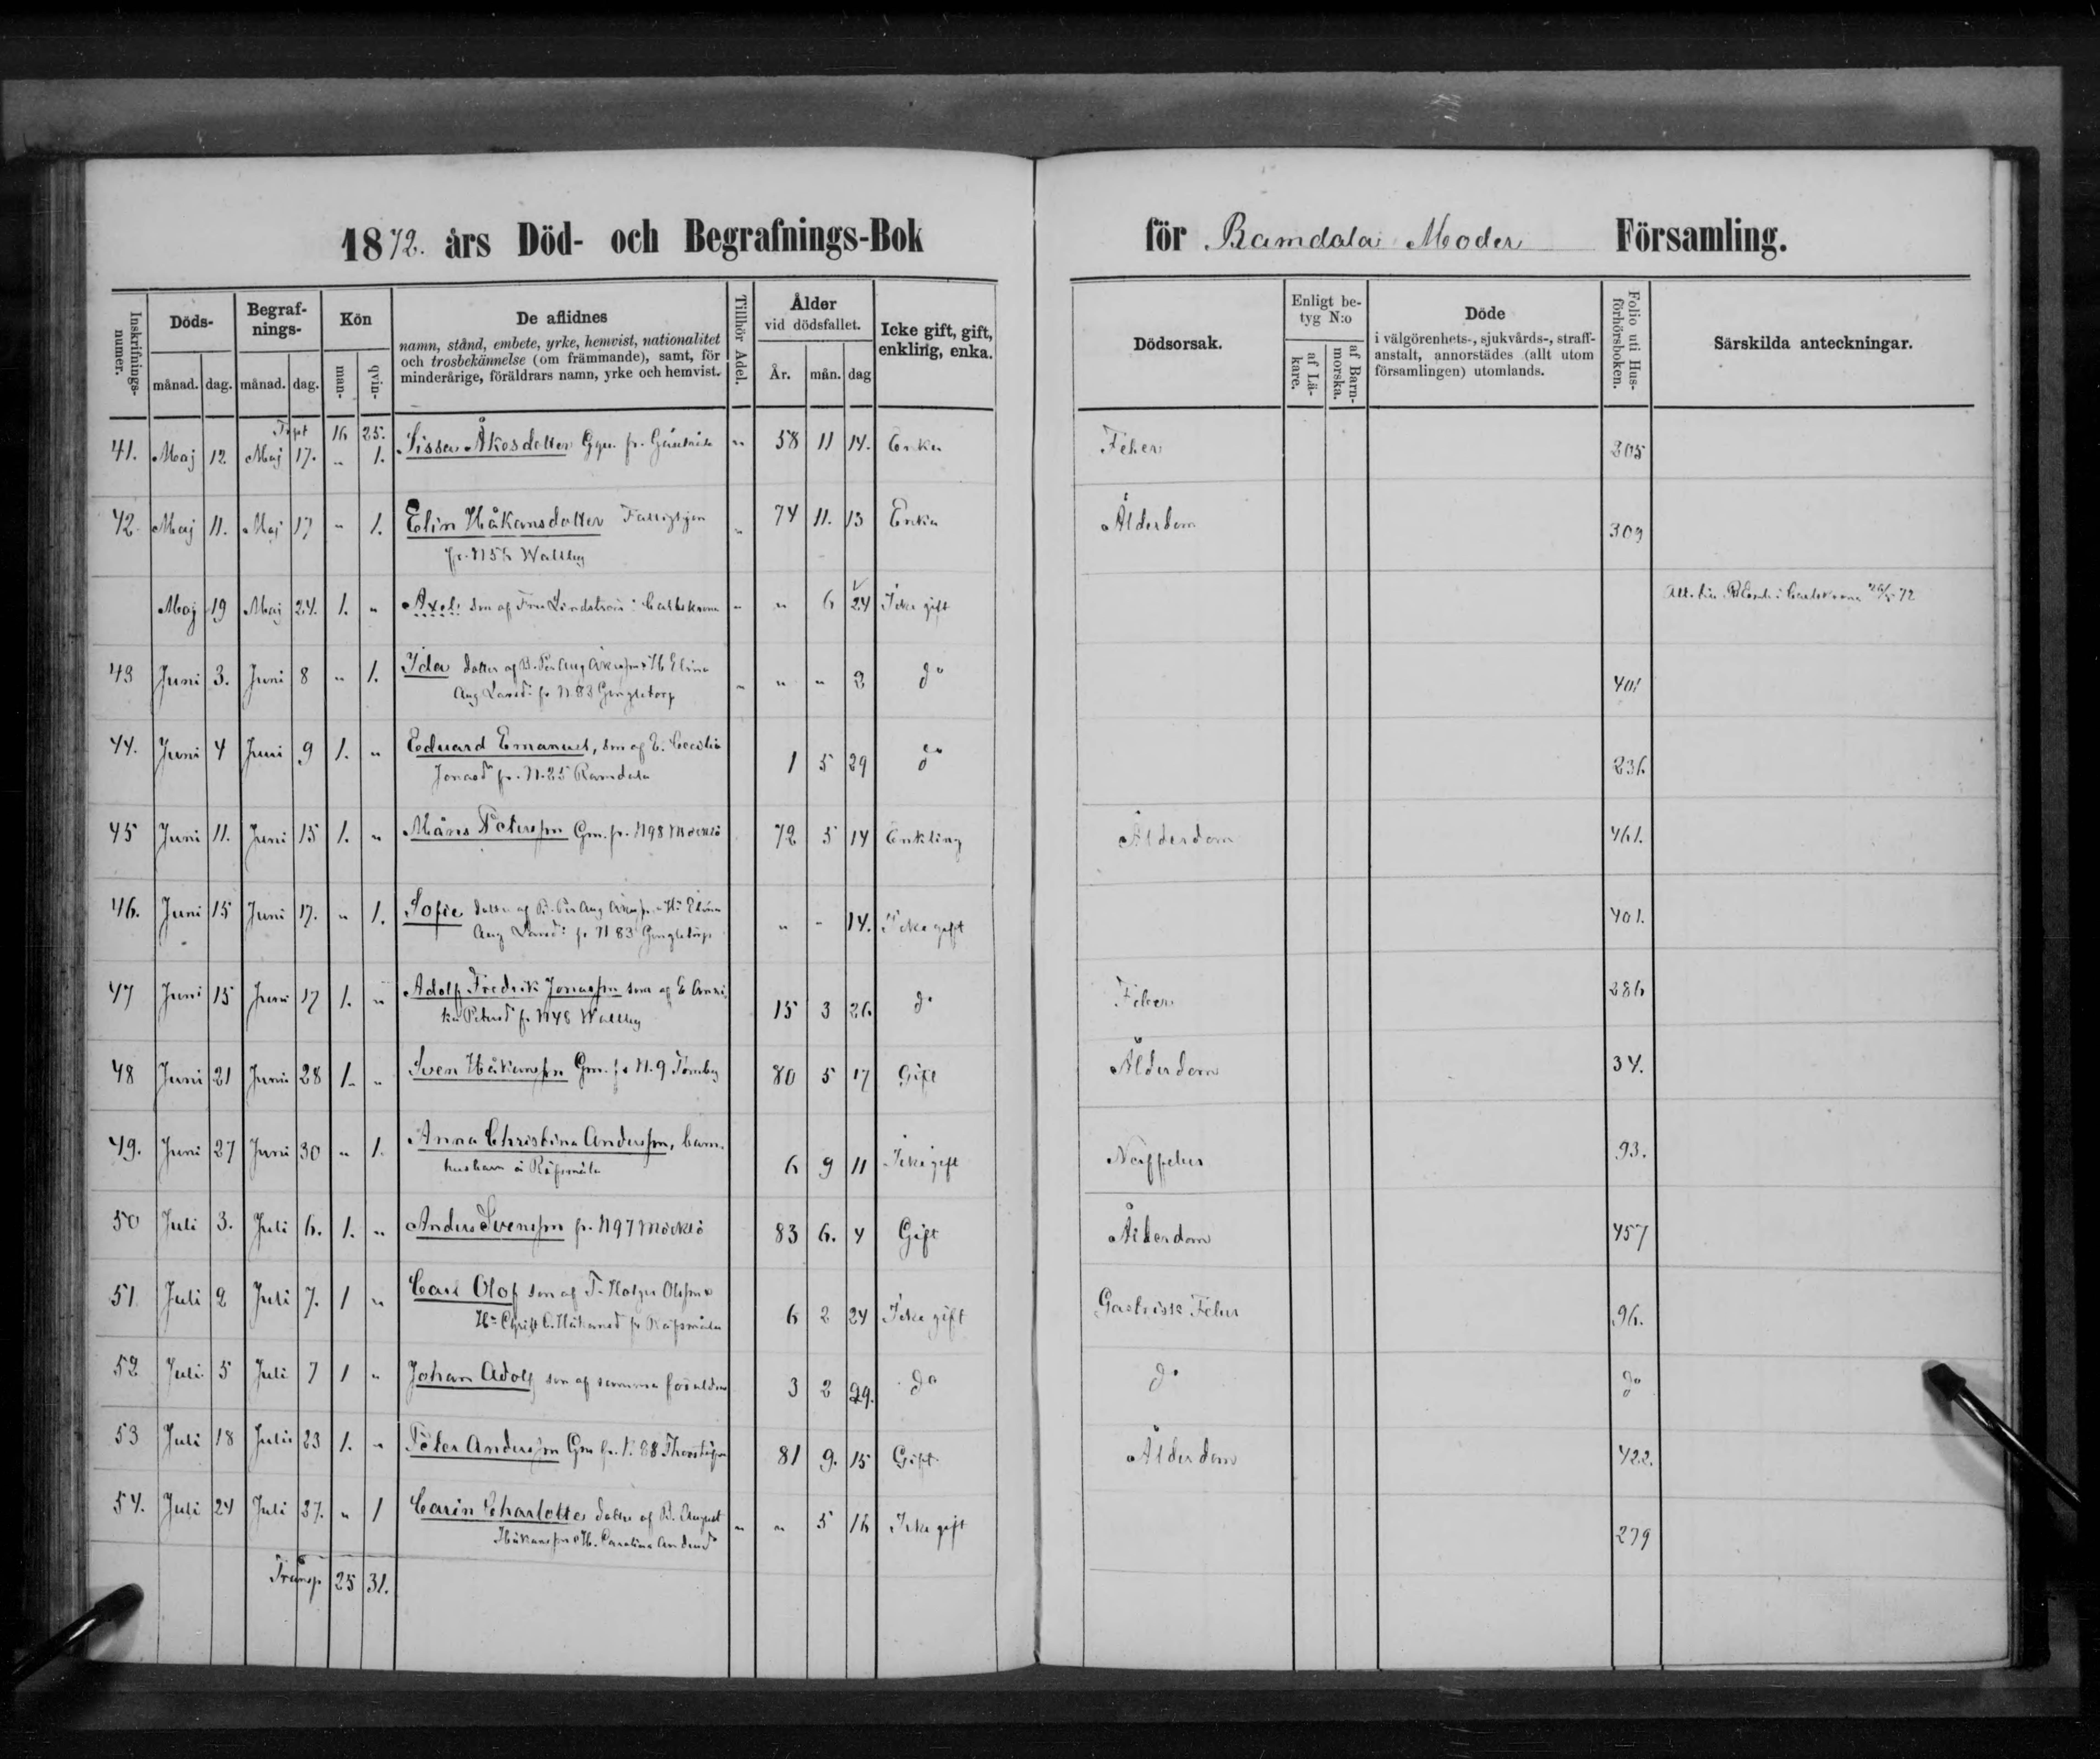 1872. års Död- och Begrafnings-Bok för Ramdala Moder Församling.
Inskrifnings-numer. Döds- Begraf-nings- Kön De aflidnes namn, stånd, embete, yrke, hemvist, nationalitet och trosbekännelse (om främmande), samt, för minderårige, föräldrars namn, yrke och hemvist. Tillhör Adel. Ålder vid dödsfallet. Icke gift, gift, enkling, enka. Dödsorsak. Enligt be-tyg N:o Döde i välgörenhets-, sjukvårds-, straff-anstalt, annorstädes (allt utom församlingen) utomlands. Folio uti Hus-förhörsboken. Särskilda anteckningar.
månad. dag. månad. dag. man- qvin- År. mån. dag af Lä-kare. af Barn-morska.
Tspt 16 25.
41. Maj 12 Maj 17. " 1. Sissa Åkesdotter fr. " 58 11 14. Enka Feber 305
42. Maj 11. Maj 17 " 1. Elin Håkansdotter " 74 11. 13 Enka Ålderdom 309
fr. N 56 Wallby
Maj 19 Maj 24. 1. " Axel son af Lindström i Carlskrona " " 6 24 Icke gift Carlskrona 72
43 Juni 3. Juni 8 " 1. Ida dotter af B. Per Aug Åkesson o H Elina " " " 2 do 401
Aug Larsd: fr N. 83 Gängletorp
44. Juni 4 Juni 9 1. " Eduard Emanuel, son af E. Cecilia 1 5 29 do 236
Jonasdr fr. N. 25 Ramdala
45 Juni 11. Juni 15 1. " Måns Petersson Gm. fr. N 98 Möcklö 72 5 14 Enkling Ålderdom 461.
46. Juni 15 Juni 17. " 1. Sofie dotter af B. Per Aug Åkesson o H: Elina " " 14. Icke gift 401.
Aug Larsd: fr N 83 Gängletorp
47 Juni 15 Juni 17 1. " Adolf Fredrik Jonasson son af E Anni- 15 3 26 do Feber 286
ka Petersd fr N 48 Wallby
48 Juni 21 Juni 28 1. " Sven Håkansson Gm. fr N. 9 Torneby 80 5 17 Gift Ålderdom 34.
49. Juni 27 Juni 30 " 1. Anna Christina Andersson, barn- 6 9 11 Icke gift 93.
husbarn å
50 Juli 3. Juli 6. 1. " Anders Svensson fr. N 97 Möcklö 83 6. 4 Gift Ålderdom 457
51 Juli 2 Juli 7. 1 " Carl Olof son af T. Holger Olsson o 6 2 24 Icke gift Gastrisk Feber 96.
H: Christ C. Håkansd fr
52 Juli 5 Juli 7 1 " Johan Adolf son af samma föräldrar 3 2 29. do do do
53 Juli 18 Juli 23 1. " Peter Andersson Gm fr. N. 88 81 9. 15 Gift Ålderdom 422.
54. Juli 24 Juli 27. " 1 Carin Charlotta dotter af B. August " " 5 16 Icke gift 279
Håkansson o H. Carolina Andersdr
Transp 25 31.